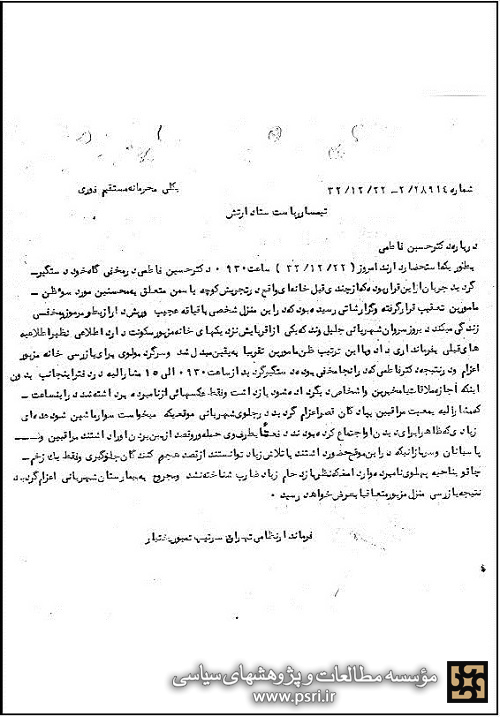 شماره ۲/۲۸۹۱۴ – ۳۲/۱۲/۲۲ بکلی محرمانه مستقیم فوری
تیمسار ریاست ستاد ارتش
درباره دکتر حسین فاطمی
بطوریکه استحضار دارند امروز (۳۲/۱۲/۲۲) ساعت ۰۹۳۰ دکتر حسین فاطمی در مخفی گاه خود دستگیر
گردید جریان از این قرار بود که از چندی قبل خانه ای واقع در تجریش کوچه یاسمن متعلق به محسنین مورد سوءظن
مامورین تعقیب قرار گرفته و گزارشاتی رسیده بود که در این منزل شخصی با قیافه عجیب و ریش دار بطور مرموز و مخفی
زندگی میکند دیروز سروان شهربانی جلیلوند که یکی از اقربایش نزدیکهای خانه مزبور سکونت دارد اطلاعی نظیر اطلاعیه
های قبلی بفرمانداری داد و با این ترتیب ظن مامورین تقریبا به یقین مبدل شد و سرگرد مولوی برای بازرسی خانه مزبور
اعزام و در نتیجه دکتر فاطمی که در آنجا مخفی بوده دستگیر گردید از ساعت ۰۹۳۰ الی ۱۵ مشارالیه در دفتر اینجانب بدون
اینکه اجازه ملاقات با مخبرین و اشخاص دیگر داده شود بازداشت و فقط عکسهائی از نامبرده برداشته شد در اینساعت
که مشارالیه بمعیت مراقبین بپادگان قصر اعزام گردید در جلوی شهربانی موقعیکه میخواست سوار ماشین شود عده ای
زیادی که ظاهرا برای دیدن او اجتماع کرده بودند دفعتاً بطرف وی حمله ور و قصد از بین بردن او را داشتند مراقبین و
پاسبانان و سربازانیکه در این موقع حضور داشتند با تلاش زیاد توانستند از قصد هجوم کنندگان جلوگیری و فقط یک زخم
چاقو بناحیه پهلوی نامبرده وارد آمد که نظر بازدحام زیاد ضارب شناخته نشد و مجروح به بیمارستان شهربانی اعزام گردید
نتیجه بازرسی منزل مزبور متعاقبا بعرض خواهد رسید ۰
فرماندار نظامی تهران – سرتیپ تیمور بختیار
مؤسسه مطالعات و پژوهشهای سیاسی
www.psri.ir